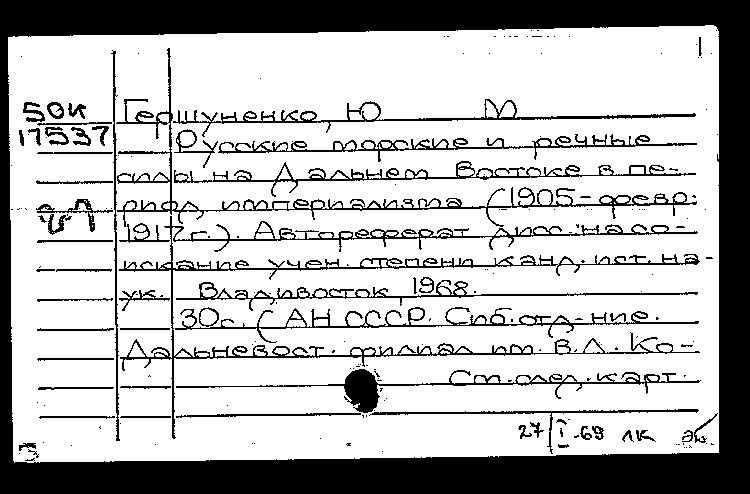 1
50к Гершуненко, Ю М
17537 Русские морские и речные
силы на Дальнем Востоке в пе-
риод империализма (1905-февр.
1917 г.). Автореферат дисс. на со-
искание учен. степени канд. ист. на-
ук. Владивосток, 1968.
30с. (АН СССР. Сиб. отд-ние.
Дальневост. филиал им. В.Л. Ко-
См. след. карт.
27/I-69 лк